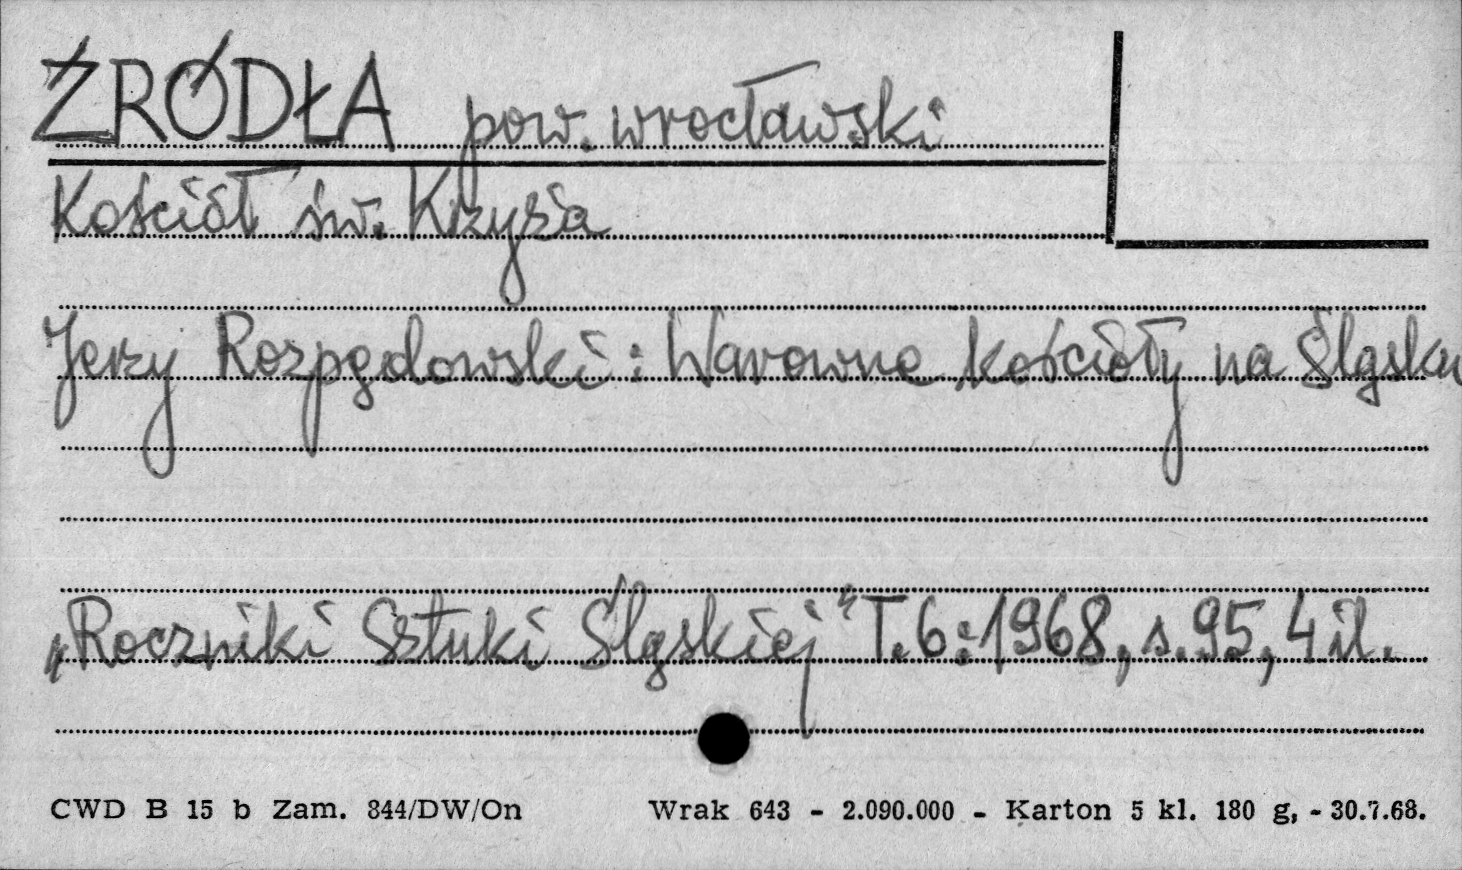 ŹRÓDŁA pow. wrocławski
Kościół św. Krzyża
Jerzy Rozpędowski: Warowne kościoły na Śląsku
„Roczniki Sztuki Śląskiej" T.6:1968, s.95, 4 il.
CWD B 15 b Zam. 844/DW/On Wrak 643 - 2.090.000 - Karton 5 kl. 180 g, - 30.7.68.